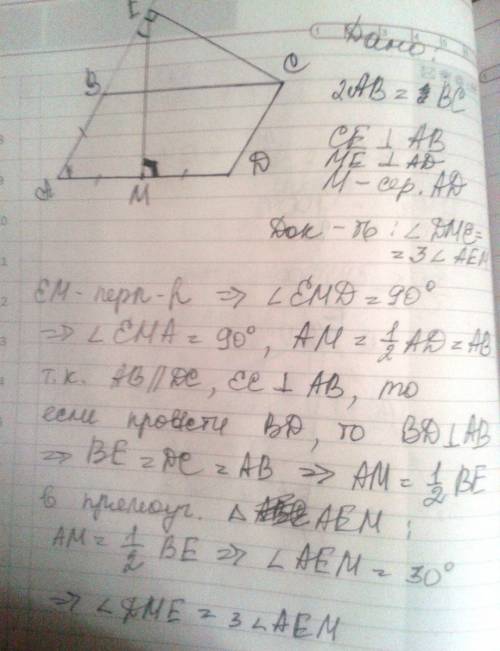 E
B
C
A
M
D
Дано:
2AB = BC
CE ⊥ AB
ME ⊥ AD
M - сер. AD
Док-ть: ∠DME =
= 3∠AEM
EM - перп-р ⇒ ∠EMD = 90°
⇒ ∠EMA = 90°, AM = 1/2 AD = AB
т.к. AB ∥ DC, EC ⊥ AB, то
если провести BD, то BD ⊥ AB
⇒ BE = DC = AB ⇒ AM = 1/2 BE
в прямоуг. △ AEM:
AM = 1/2 BE ⇒ ∠AEM = 30°
⇒ ∠DME = 3∠AEM